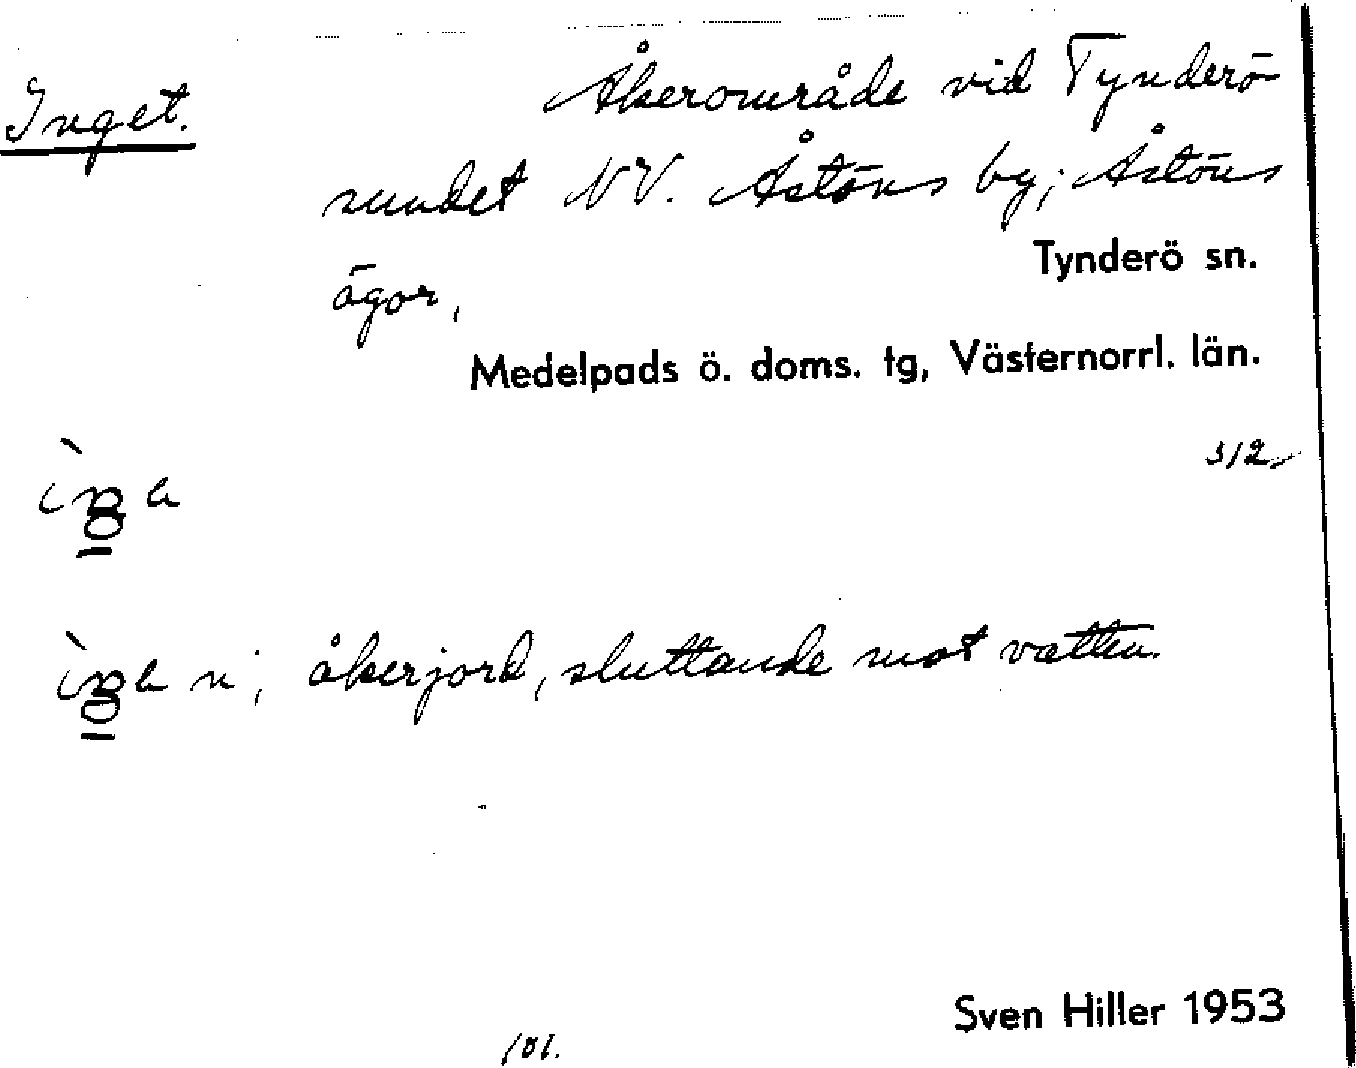 Inget.
Åkerområde vid Tynderö-
sundet NV. Åstöns by; Åstöns
ägor,
Tynderö sn.
Medelpads ö. doms. tg, Västernorrl. län.
312
åkerjord, sluttande mot vatten.
Sven Hiller 1953
101.